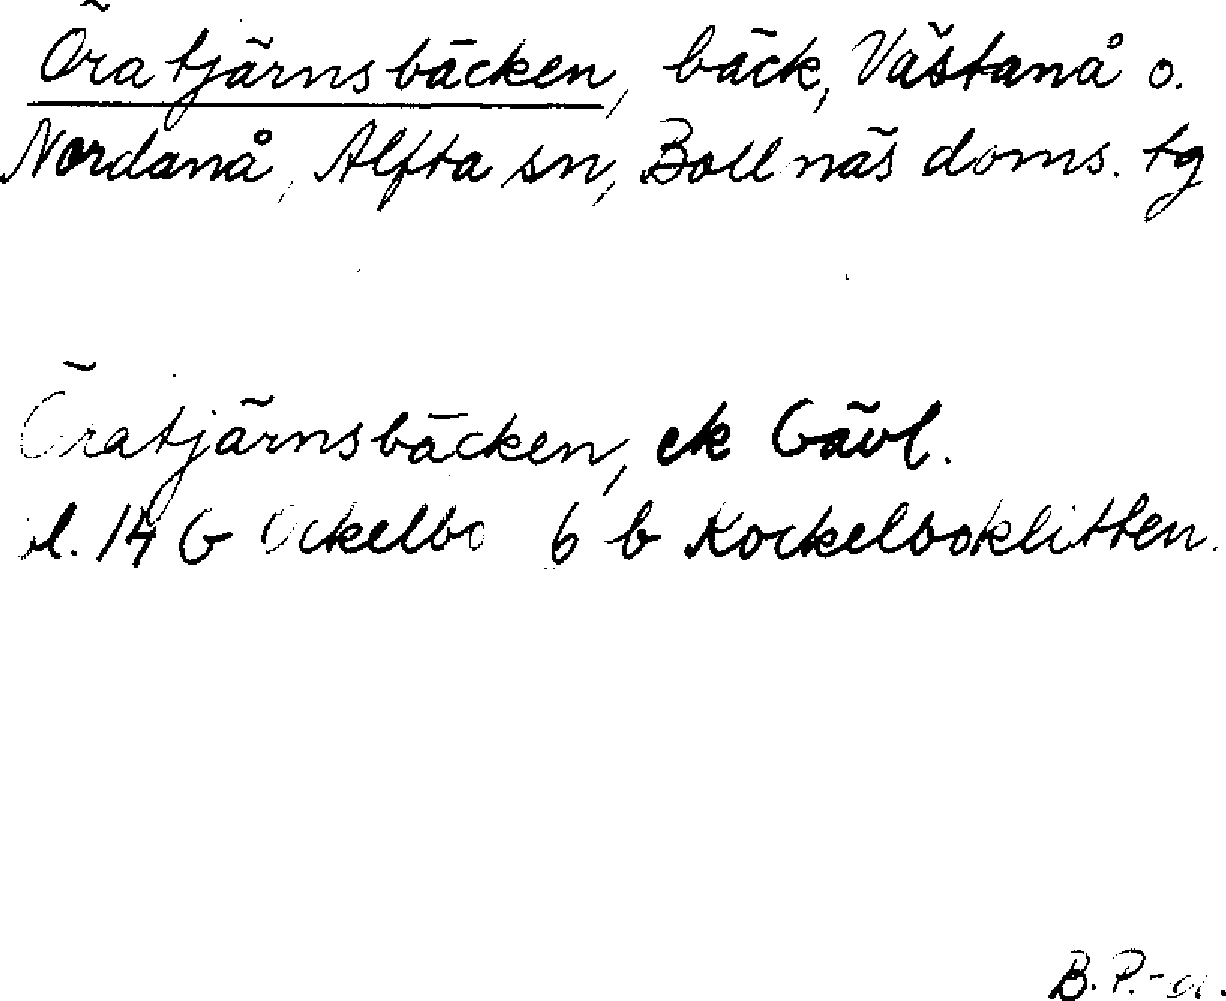 Öratjärnsbäcken, bäck, Västanå o.
Nordanå, Alfta sn, Bollnäs doms. tg
Öratjärnsbäcken, ek Gävl.
l. 14 G Ockelbo 6 b Kockelboklitten.
B. P.-a.